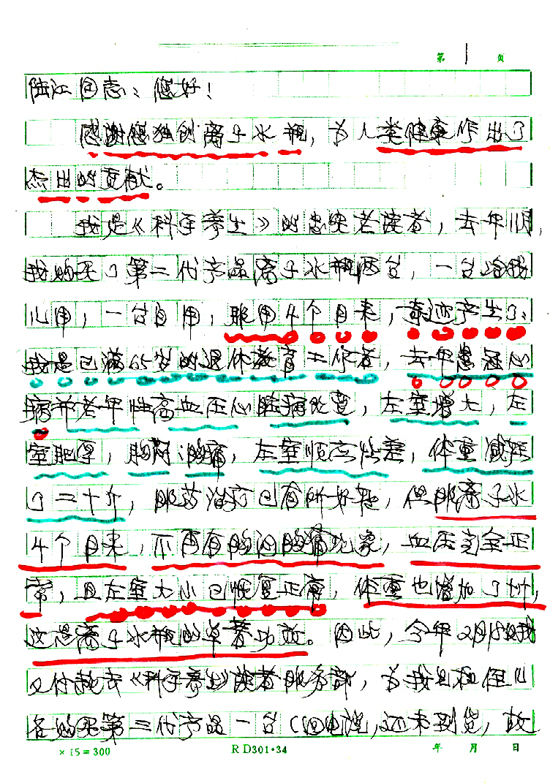 第 1 页
陆江同志：您好！
感谢您独创离子水瓶，为人类健康作出了
杰出的贡献。
我是《科学养生》的忠实老读者，去年八月，
我购买了第二代产品离子水瓶两台，一台给我
儿用，一台自用，服用4个月来，奇迹产生了：
我是已满65岁的退休教育工作者，去年患冠心
病并老年性高血压心脏病改变，左室增大，左
室肥厚，胸闷胸痛，左室顺应性差，体重减轻
了二十斤，服药治疗已有所好转，但服离子水
4个月来，不再有胸闷胸痛现象，血压完全正
常，且左室大小已恢复正常，体重也增加了十斤，
这是离子水瓶的卓著功效。因此，今年2月18我
又付款去《科学养生》读者服务部，为我自和侄儿
各购买第三代产品一台（回电说，还未到货，故
×15=300
RD301·34
年 月 日